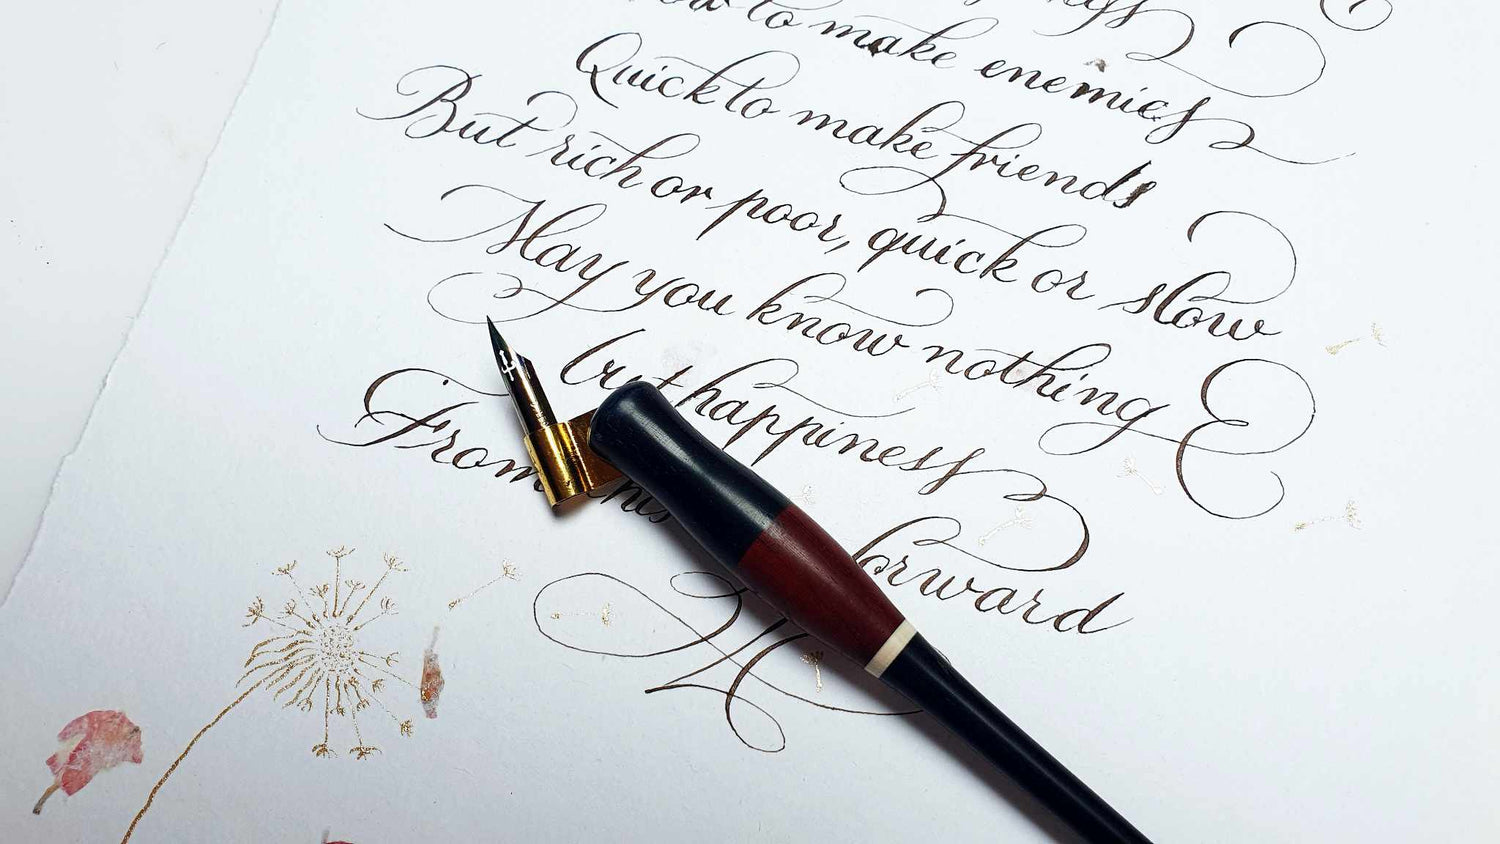 to make enemies
Quick to make friends
But rich or poor, quick or slow
May you know nothing
but happiness
From this forward